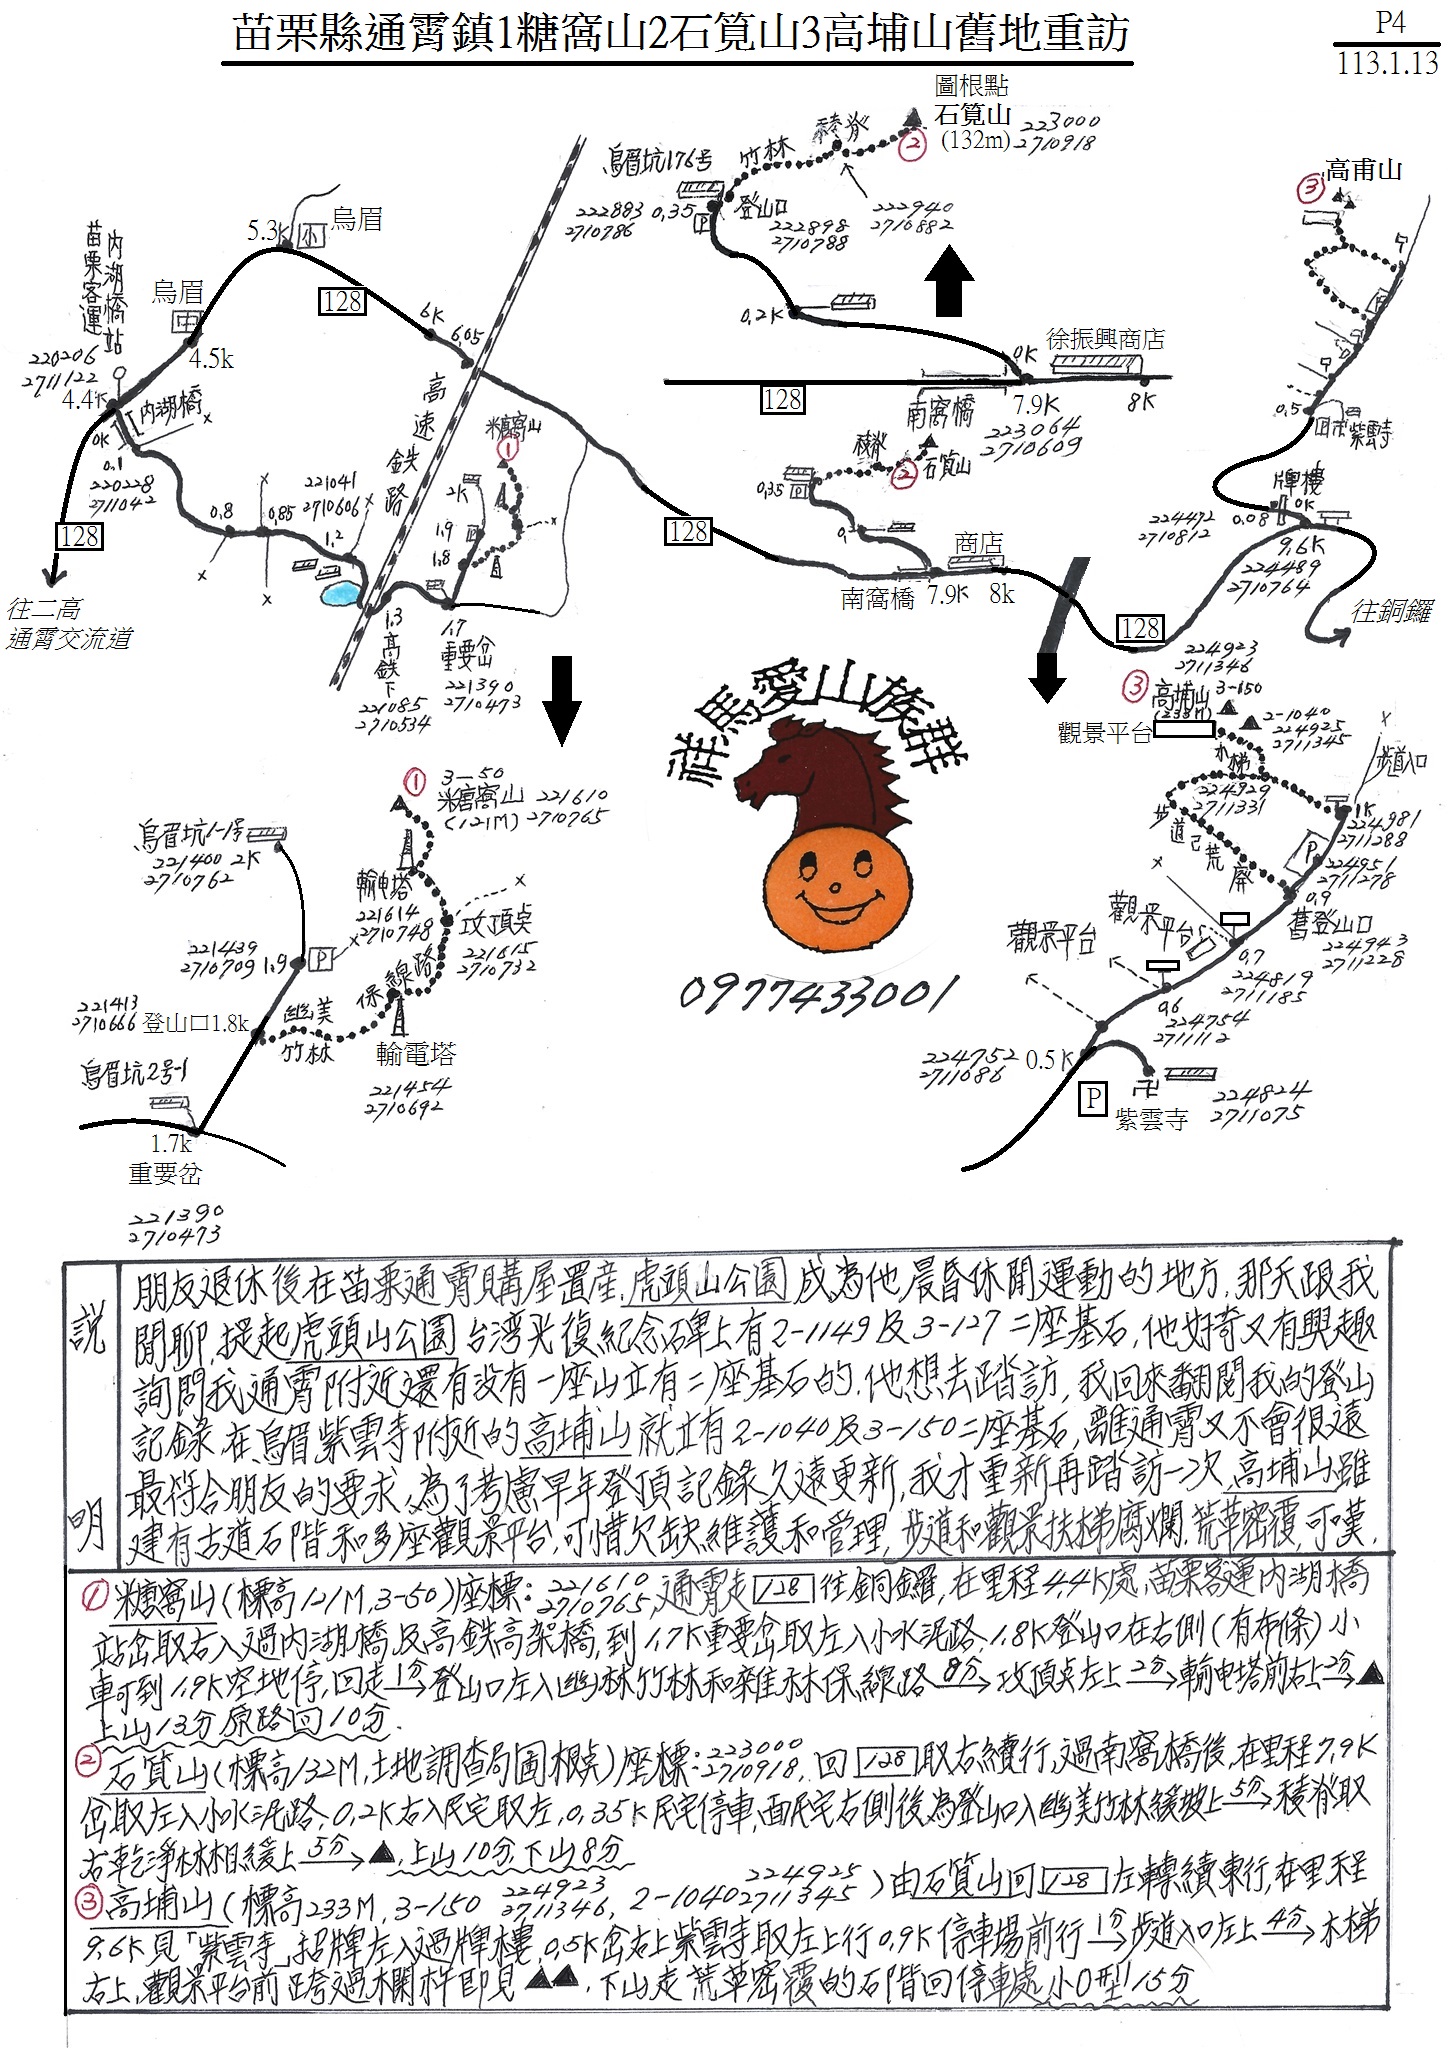 苗栗縣通霄鎮1糖窩山2石筧山3高埔山舊地重訪
P4
113.1.13
圖根點
石筧山
(132m)
223000
2710918
②
稜脊
竹林
烏眉坑176号
222883
2710786
0.35
P
登山口
222898
2710788
222940
2710882
0.2K
0K
徐振興商店
128
南窩橋
7.9K
8K
223064
2710609
高甫山
③
P
0.5
紫雲寺
牌樓
0K
0.08
224472
2710812
9.6K
224489
2710764
往銅鑼
烏眉
5.3K
小
128
6K
6.05
烏眉
中
4.5k
苗栗客運
內湖橋站
220206
2711122
4.4K
內湖橋
0K
0.1
220228
2711042
128
往二高
通霄交流道
0.8
0.85
221041
2710606
1.2
高速鉄路
糖窩山
①
2K
1.9
1.8
1.3
高鉄下
221085
2710534
1.7
重要岔
221390
2710473
128
稜脊
②
石筧山
0.35
P
0.2
商店
南窩橋
7.9K
8k
128
祥馬愛山族群
0977433001
①
3-50
糖窩山
(121M)
221610
2710765
烏眉坑1-1号
221400
2710762
2K
輸电塔
221614
2710748
攻頂点
221615
2710732
保線路
221439
2710709
1.9
P
幽美
竹林
221413
2710666
登山口1.8k
輸電塔
221454
2710692
烏眉坑2号-1
1.7k
重要岔
221390
2710473
224923
2711346
③
高埔山
(233M)
3-150
2-1040
224925
2711345
觀景平台
木梯
224929
2711331
步道入口
1K
224981
2711288
步道已荒廢
P
224951
2711278
0.9
舊登山口
224943
2711228
觀景平台
觀景平台
0.7
224819
2711185
0.6
224754
2711112
224752
2711086
0.5K
P
卍
紫雲寺
224824
2711075
說明
朋友退休後在苗栗通霄購屋置產,虎頭山公園成為他晨昏休閒運動的地方,那天跟我
閒聊,提起虎頭山公園台湾光復紀念碑上有2-1149及3-127二座基石,他好奇又有興趣
詢問我,通霄附近還有沒有一座山立有二座基石的,他想去踏訪,我回來翻閱我的登山
記錄,在烏眉紫雲寺附近的高埔山就立有2-1040及3-150二座基石,離通霄又不會很遠
最符合朋友的要求,為了考慮早年登頂記錄久遠更新,我才重新再踏訪一次,高埔山雖
建有古道石階和多座觀景平台,可惜欠缺維護和管理,步道和觀景扶梯腐爛,荒草密覆,可嘆.
①糖窩山(標高121M,3-50)座標:221610 2710765,通霄走128往銅鑼,在里程4.4K處,苗栗客運內湖橋
站岔取右入過內湖橋及高鉄高架橋,到1.7K重要岔取左入小水泥路,1.8K登山口在右側(有布條)小
車可到1.9K空地停,回走1分→登山口左入幽林竹林和雜林保線路8分→攻頂点左上2分→輸电塔前右上2分→▲
上山13分原路回10分.
②石筧山(標高132M,土地調查局圖根点)座標:223000 2710918,回128取右續行,過南窩橋後,在里程7.9K
岔取左入小水泥路,0.2K右入民宅取左,0.35K民宅停車,面民宅右側後為登山口入幽美竹林緩坡上5分→稜脊取
右乾淨林相緩上5分→▲,上山10分,下山8分
③高埔山(標高233M,3-150 224923 2711346, 2-1040 224925 2711345)由石筧山回128左轉續東行,在里程
9.6K見「紫雲寺」招牌左入過牌樓,0.5K岔右上紫雲寺取左上行0.9K停車場前行1分→步道入口左上4分→木梯
右上,觀景平台前跨過欄杆即見▲▲,下山走荒草密覆的石階回停車處,小O型15分